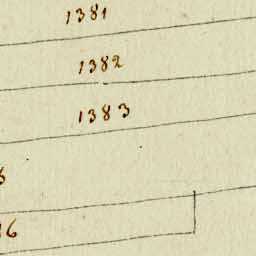 1381
1382
1383
6